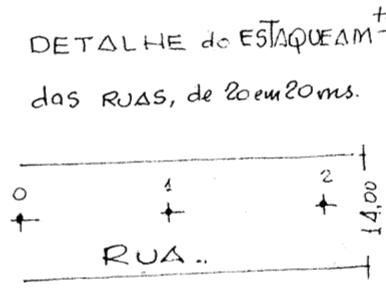 DETALHE do ESTAQUEAM+
das RUAS, de 20em20ms.
0 1 2
14,00
RUA..